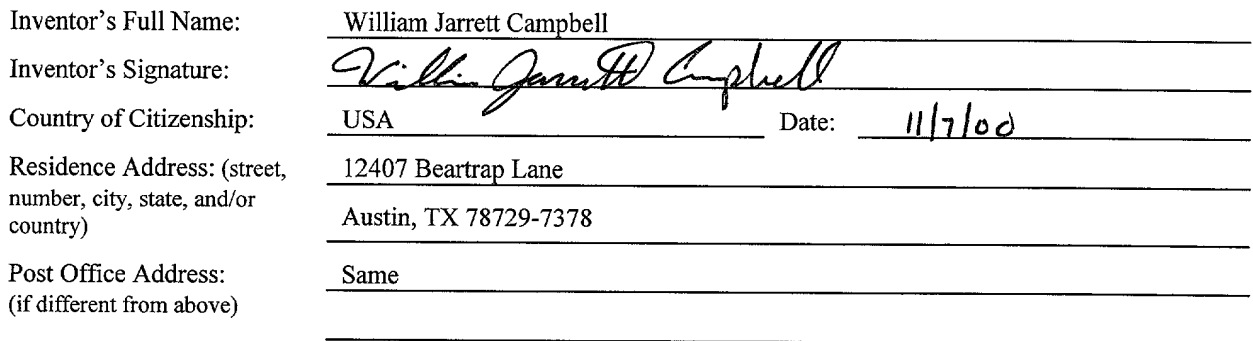 Inventor's Full Name: William Jarrett Campbell
Inventor's Signature: William Jarrett Campbell
Country of Citizenship: USA Date: 11/7/00
Residence Address: (street, 12407 Beartrap Lane
number, city, state, and/or
country) Austin, TX 78729-7378
Post Office Address: Same
(if different from above)